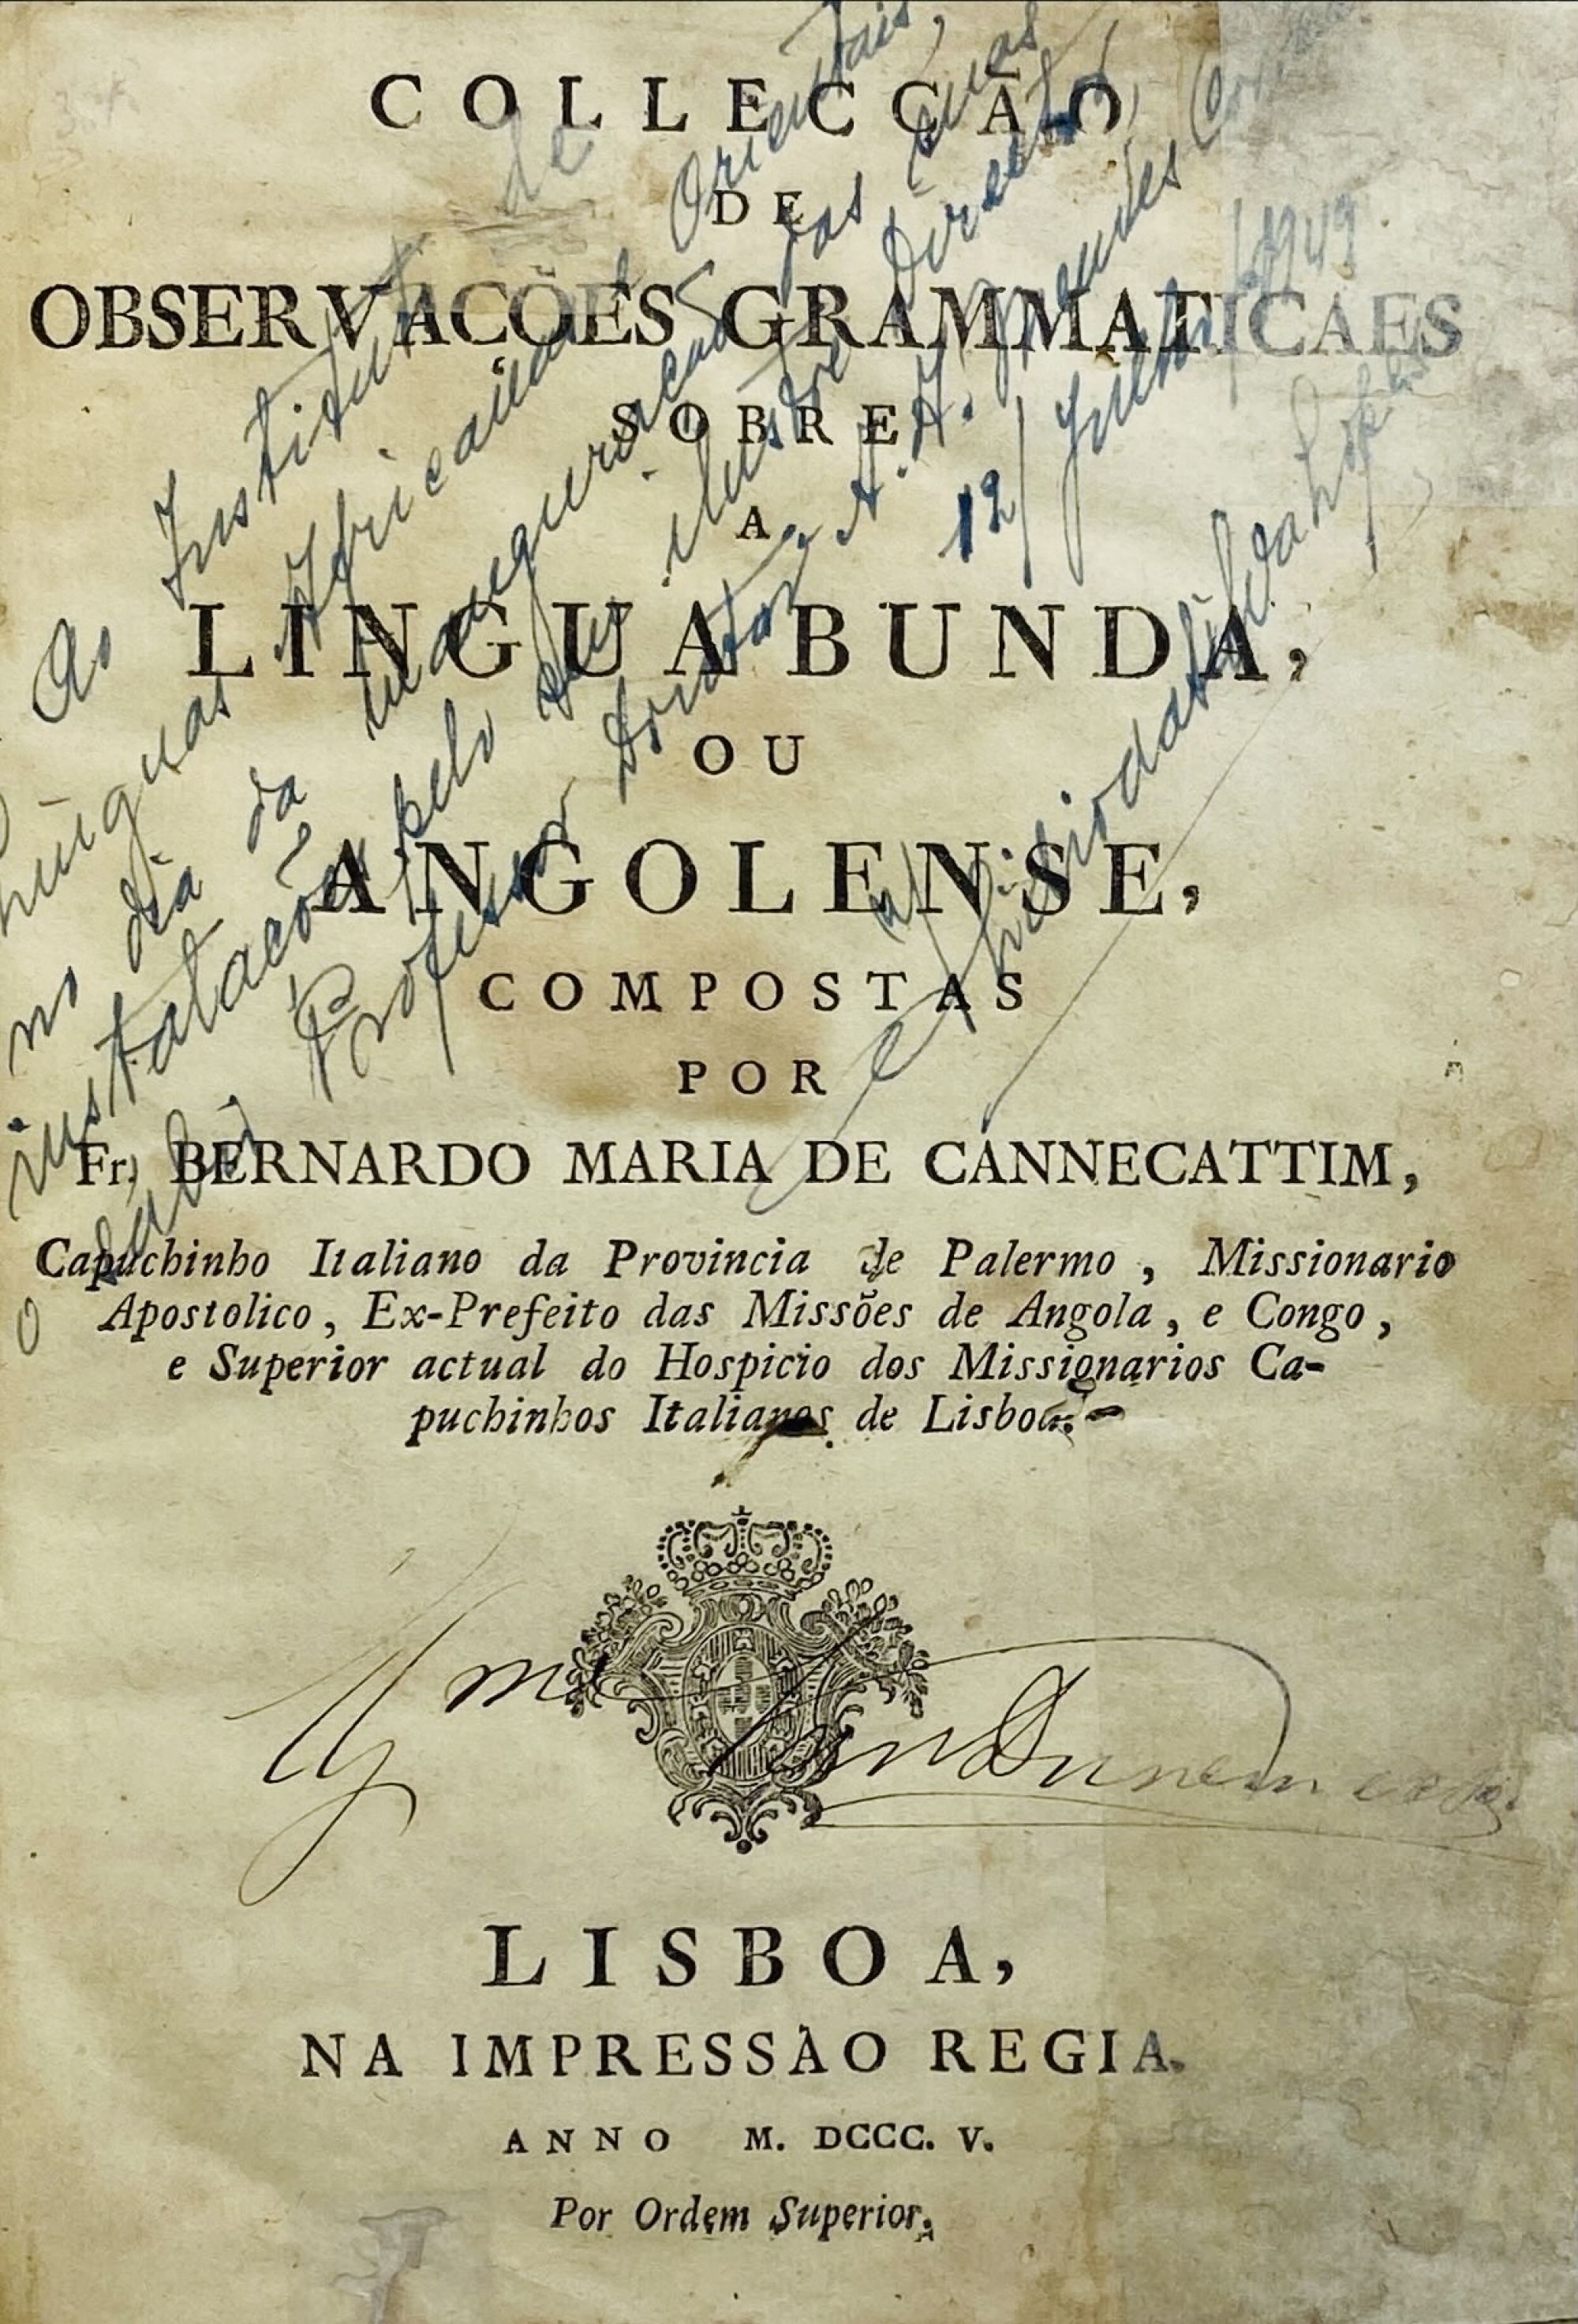 COLLECÇÃO
DE
OBSERVAÇÕES GRAMMATICAES
SOBRE
A
LINGUA BUNDA,
OU
ANGOLENSE,
COMPOSTAS
POR
Fr. BERNARDO MARIA DE CANNECATTIM,
Capuchinho Italiano da Provincia de Palermo, Missionario
Apostolico, Ex-Prefeito das Missões de Angola, e Congo,
e Superior actual do Hospicio dos Missionarios Ca-
puchinhos Italianos de Lisboa.
LISBOA,
NA IMPRESSÃO REGIA.
ANNO M. DCCC. V.
Por Ordem Superior.
Ao Instituto de
Línguas Africanas e Orientais,
no dia da inauguração das suas
instalações, pelo seu ilustre Director,
o Professor Doutor A. A. Mendes
12/Julho/1949